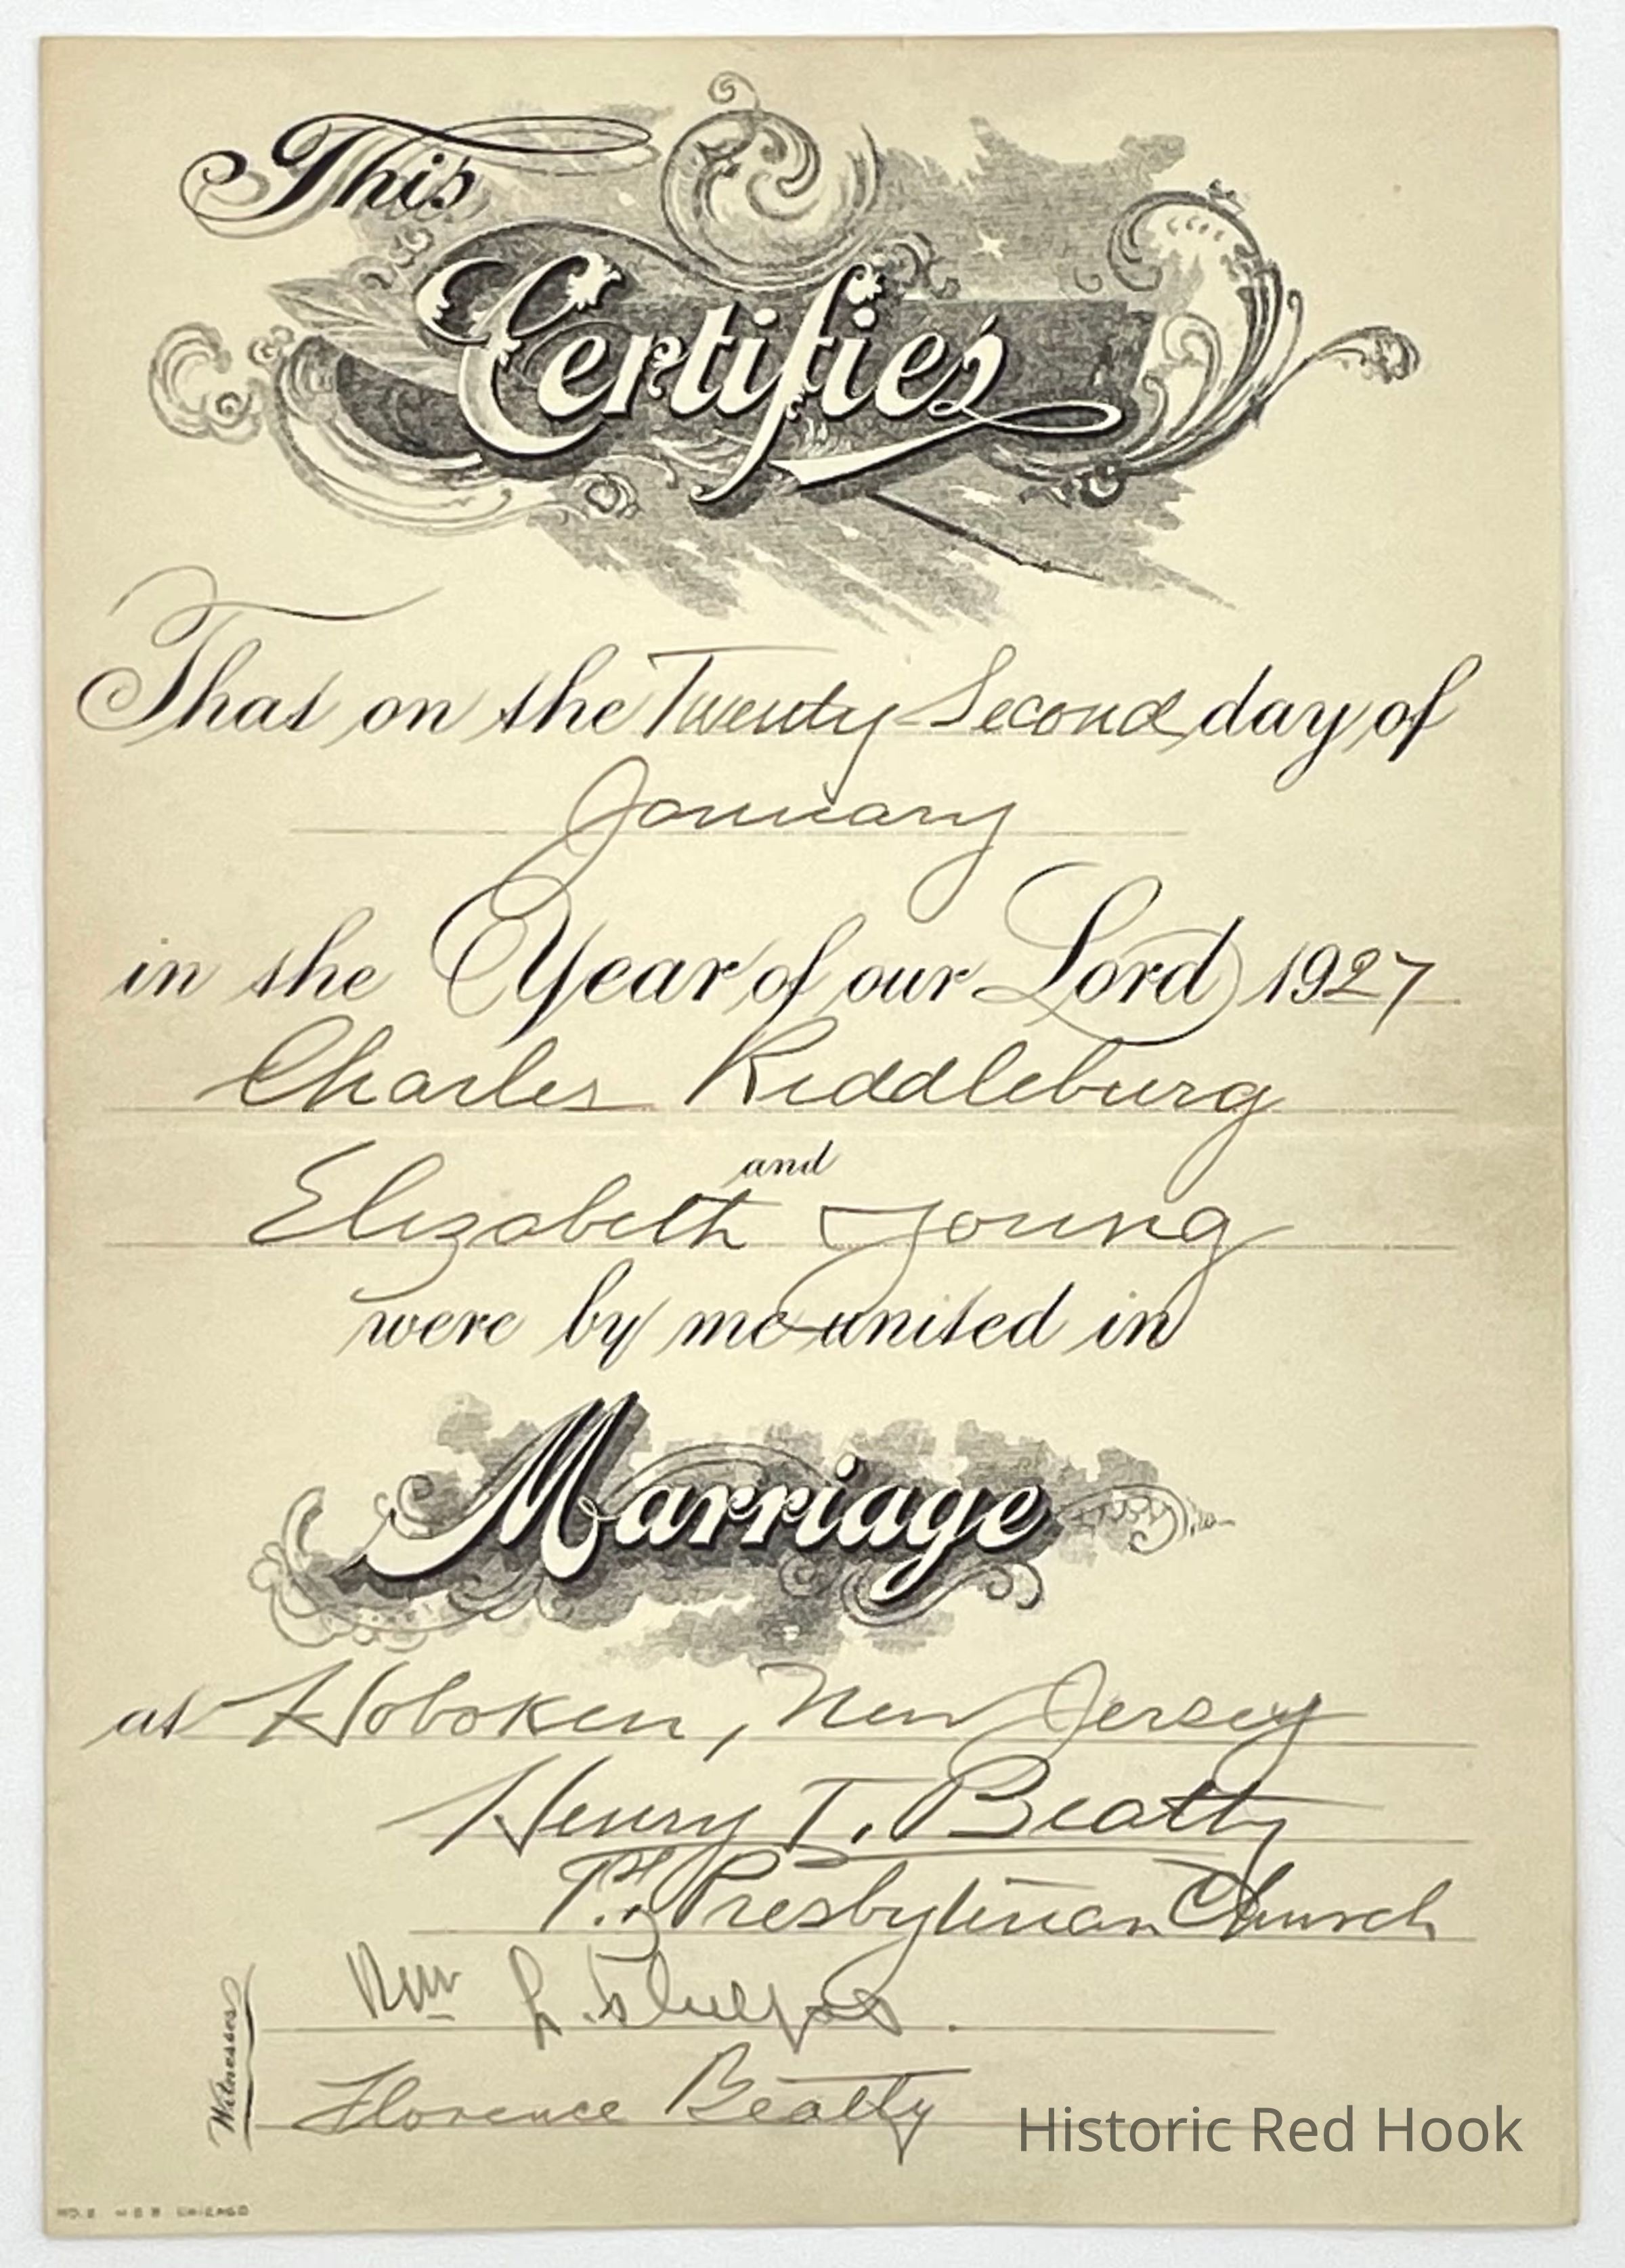 This
Certifies
That on the Twenty-Second day of
January
in the Year of our Lord 1927
Charles Riddleburg
and
Elizabeth Young
were by me united in
Marriage
at Hoboken, New Jersey
Henry T. Beatty
Presbyterian Church
Witnesses
Wm L.
Florence Beatty
Historic Red Hook
CHICAGO